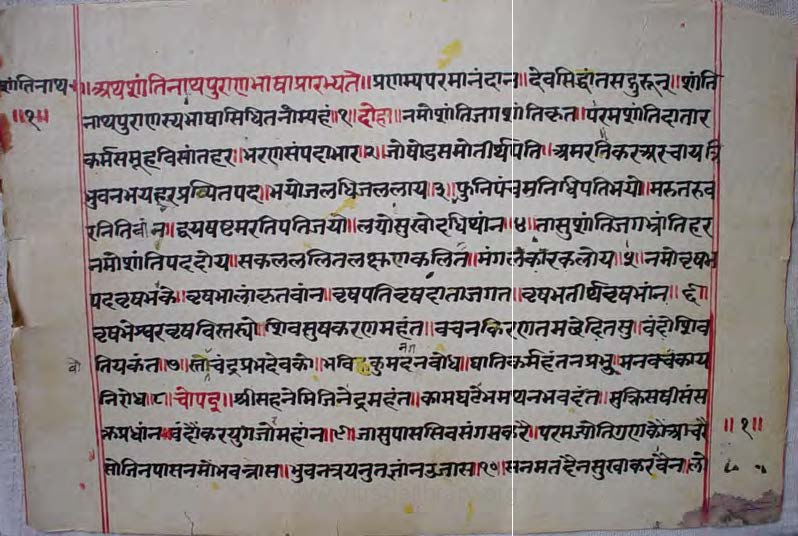 शांतिनाथ
॥१॥
॥अथशांतिनाथपुराणभाषाप्रारभ्यते॥प्रणम्यपरमानंदान॥देवसिद्धांतसद्गुरून्॥शांति
नाथपुराणस्यभाषासिधितनोम्यहं॥१॥दोहा॥नमोशांतिजगशांतिकृत॥परमशांतिदातार
कर्मसमूहविसांतहर॥भरणसंपदाभार॥२॥जोषोडसमोतीर्थपति॥अमरतिकरअरचायत्रि
भुवनभयहरप्रथितपद॥भयोजलधिजललाय॥३॥फुनिपंचमनिधिपतिभयो॥मरुतरुव
रनितिवांन॥द्वयषष्टमरतिपतिजयो॥लयोसुखोदधिथांन॥४॥तासुशांतिजगभ्रांतिहर
नमोशांतिपददोय॥सकलललितलक्षणकलित॥मंगलकारकलोय॥५॥नमोवृषभ
पदवृषभके॥वृषभालांकृतवांन॥वृषपतिवृषदाताजगत॥वृषभतीर्थवृषभांन॥६॥
वृषभेश्वरवृषविस्तस्यो॥शिवसुषकरणमहंत॥वचनकिरणतमछेदितसु॥वंदोशिव
तियकंत॥७॥चंद्रप्रभदेवको॥भविकुमदनबोध॥घातिकर्महंतनप्रभु॥मनवचकाय
निरोध॥८॥चोपइ॥श्रीसहनेमिजिनेद्रमहंत॥कामघटेभमथनभवहंत॥मुक्तिसषीसंस
क्तप्रधांन॥वंदौकरयुगजोमहांन॥९॥जासुपाससिवसंगमकरै॥परमज्योतिगुण
सोजिनपासनमोंभवत्रास॥भुवनत्रयनुतज्ञांनउजास॥१०॥सनमतदैनसुखाकरवैन॥लो
॥१॥